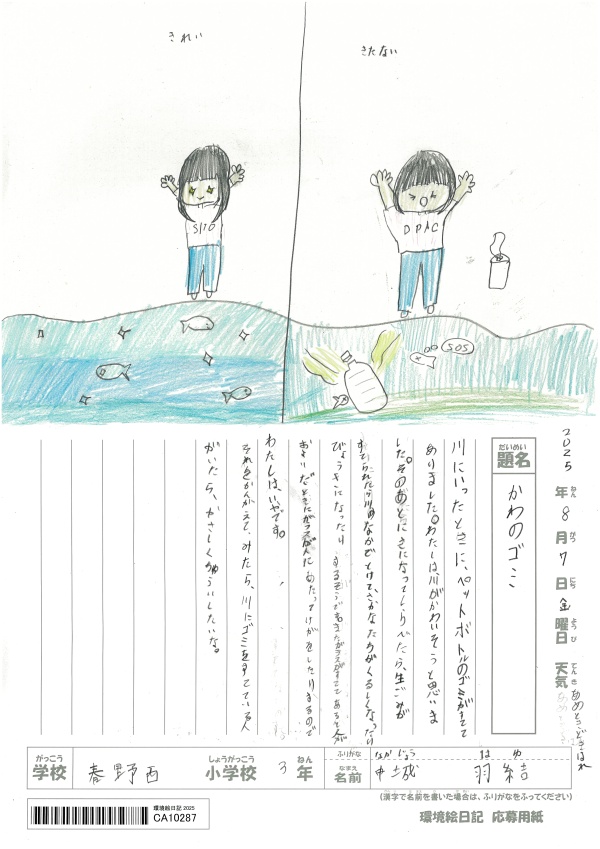 きれい
きたない
SITO
DPAC
SOS
2025年8月7日金曜日 天気 あめときどきはれ
ねん がつ にち ようび てんき
だいめい
題名
かわのゴミ
川にいったときに、ペットボトルのゴミがすてて
ありました。わたしは、川がかわいそうと思いま
した。そのあと、きになってしらべたら、生ごみが
すてられたら、川のなかでとけて、さかなたちがくるしくなったり
びょうきになったり
わたしは、いやです。
それをかんがえて、みたら、川にゴミをすてている人
がいたら、やさしくちゅういしたいな。
がっこう
学校
春野西
しょうがっこう
小学校
3
ねん
年
ふりがな
なまえ
名前
なかじょう はゆ
中城 羽結
(漢字で名前を書いた場合は、ふりがなをふってください)
環境絵日記 2025
CA10287
環境絵日記 応募用紙